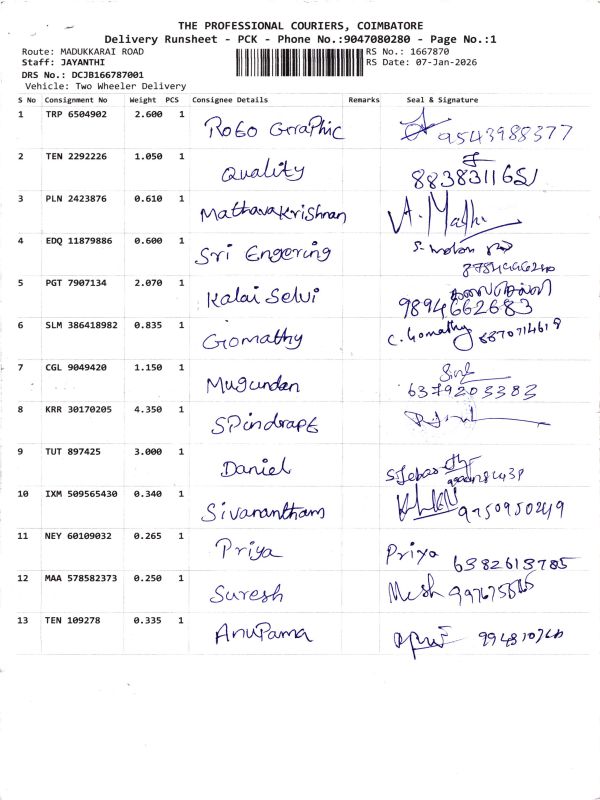 THE PROFESSIONAL COURIERS, COIMBATORE
Delivery Runsheet - PCK - Phone No.:9047080280 - Page No.:1
Route: MADUKKARAI ROAD RS No.: 1667870
Staff: JAYANTHI RS Date: 07-Jan-2026
DRS No.: DCJB166787001
Vehicle: Two Wheeler Delivery
S No Consignment No Weight PCS Consignee Details Remarks Seal & Signature
1 TRP 6504902 2.600 1 Robo Graphic 9543988377
2 TEN 2292226 1.050 1 Quality
3 PLN 2423876 0.610 1 Mathavakrishnan A. Mathi
4 EDQ 11879886 0.600 1 Sri Engering
5 PGT 7907134 2.070 1 Kalai Selvi கலைசெல்வி
9894662683
6 SLM 386418982 0.835 1 Gomathy C. Gomathy
7 CGL 9049420 1.150 1 Mugundan
6379203383
8 KRR 30170205 4.350 1 SPindrapt
9 TUT 897425 3.000 1 Daniel
10 IXM 509565430 0.340 1 Sivanantham 9750950249
11 NEY 60109032 0.265 1 Priya Priya 6382613785
12 MAA 578582373 0.250 1 Suresh
13 TEN 109278 0.335 1 AnuPama